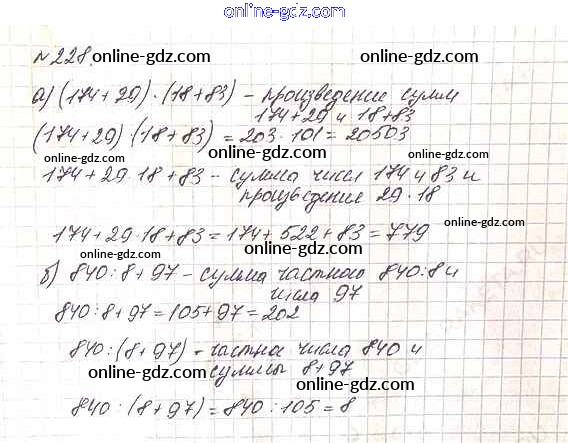 online-gdz.com
№228 online-gdz.com online-gdz.com
а) (174+29)·(18+83) – произведение сумм
174+29 и 18+83
(174+29)·(18+83) = 203·101 = 20503
online-gdz.com online-gdz.com online-gdz.com
174+29·18+83 – сумма чисел 174 и 83 и
произведения 29·18
online-gdz.com online-gdz.com
174+29·18+83 = 174+522+83 = 779
online-gdz.com online-gdz.com
б) 840:8+97 – сумма частного 840:8 и
числа 97
840:8+97 = 105+97 = 202
online-gdz.com online-gdz.com
840:(8+97) – частное числа 840 и
суммы 8+97
online-gdz.com online-gdz.com
840:(8+97) = 840:105 = 8
online-gdz.com online-gdz.com